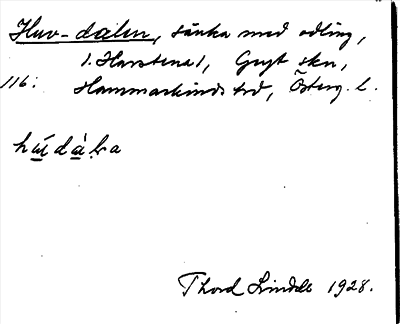 Huv-dalen, sänka med odling,
1. Harstena 1, Gryt skn,
116: Hammarkinds hd, Österg. l.
Thord Lindell 1928.